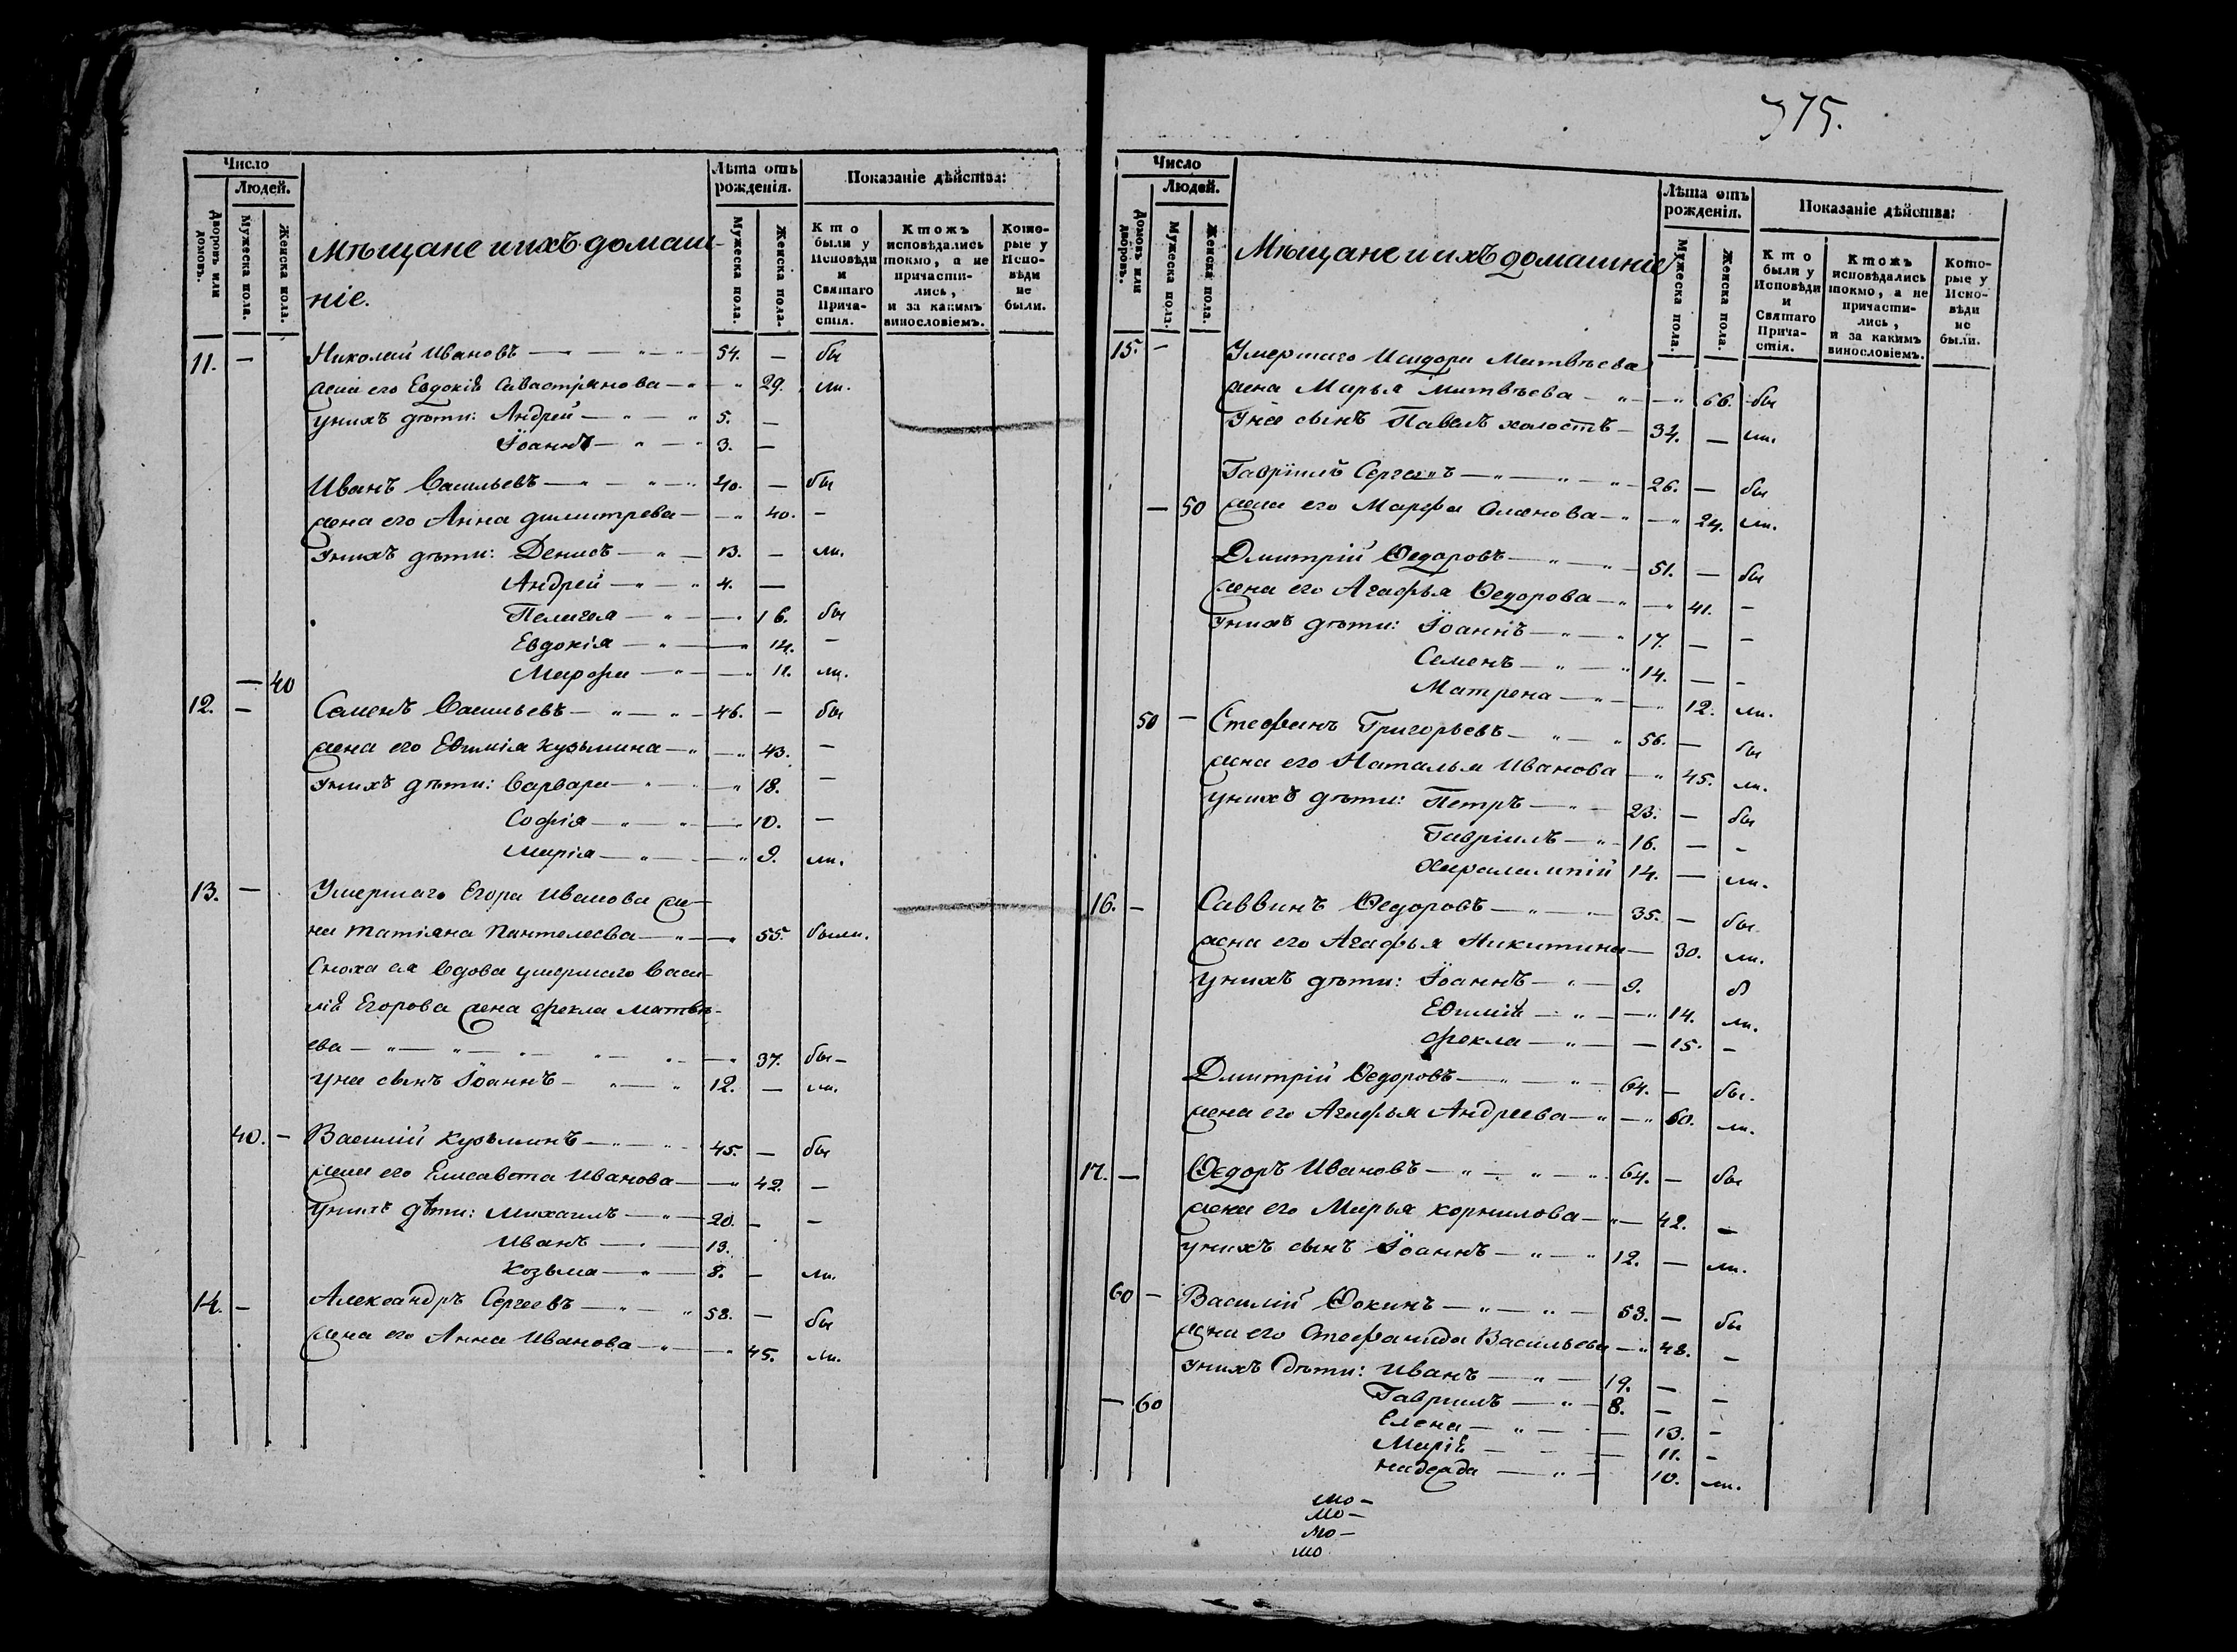 Число
Людей.
Дворовъ или домовъ.
Мужеска пола.
Женска пола.
Мѣщане и ихъ домаш-
ніе.
Лѣта отъ рожденія.
Мужеска пола.
Женска пола.
Показаніе дѣйства:
Кто были у Исповѣди и Святаго Прича-стія.
Ктожъ исповѣдались токмо, а не причасти-лись, и за какимъ винословіемъ.
Кото-рые у Испо-вѣди не были.
11. — Николай Ивановъ — 54. — бы
жена его Евдокія Савастіянова — 29. ли.
у нихъ дѣти: Андрей — 5. —
Іоаннъ — 3. —
Иванъ Васильевъ — 40. — бы
жена его Анна Димитрева — 40. —
у нихъ дѣти: Денисъ — 13. — ли.
Андрей — 4. —
Пелагея — 16. бы
Евдокія — 14. —
— 40 Марфа — 11. ли.
12. — Семенъ Васильевъ — 46. — бы
жена его Евѳимія Кузьмина — 43. —
у нихъ дѣти: Варвара — 18. —
Софія — 10. —
Марія — 9. ли.
13. — Умершаго Егора Иванова же-
на Татіяна Пантелеева — 55. были.
Сноха ея вдова умершаго Васи-
лія Егорова жена Фекла Матвѣ-
ева — 37. бы —
у нея сынъ Іоаннъ — 12. — ли.
40. — Василій Кузьминъ — 45. — бы
жена его Елисавета Иванова — 42. —
у нихъ дѣти: Михаилъ — 20. — —
Иванъ — 13.
Козьма — 8. — ли.
14. — Александръ Сергеевъ — 58. — бы
жена его Анна Иванова — 45. ли.
375.
Число
Людей.
Домовъ или дворовъ.
Мужеска пола.
Женска пола.
Мѣщане и ихъ домашніе
Лѣта отъ рожденія.
Мужеска пола.
Женска пола.
Показаніе дѣйства:
Кто были у Исповѣди и Святаго Прича-стія.
Ктожъ исповѣдались токмо, а не причасти-лись, и за какимъ винословіемъ.
Кото-рые у Испо-вѣди не были.
15. — Умершаго Исидора Матвѣева
жена Марья Матвѣева — 66. бы
У нея сынъ Павелъ холостъ — 34. — ли.
Гавріилъ Сергеевъ — 26. — бы
— 50 жена его Марфа Семенова — 24. ли.
Дмитрій Ѳедоровъ — 51. — бы
жена его Агафья Ѳедорова — 41. —
У нихъ дѣти: Іоаннъ — 17. — —
Семенъ — 14. — —
Матрена — 12. ли.
50 — Стефанъ Григорьевъ — 56. — бы
жена его Наталья Иванова — 45. ли.
У нихъ дѣти: Петръ — 23. — бы
Гавріилъ — 16. — —
Харалампій 14. — ли.
16. — Саввинъ Ѳедоровъ — 35. — бы
жена его Агафья Никитина — 30. ли.
у нихъ дѣти: Іоаннъ — 9. б
Евѳимія — 14. ли.
Фекла — 15. —
Дмитрій Ѳедоровъ — 64. — бы.
жена его Агафья Андреева — 60. ли.
17. — Ѳедоръ Ивановъ — 64. — бы
жена его Марья Корнилова — 42. —
у нихъ сынъ Іоаннъ — 12. — ли.
60 — Василій Ѳокинъ — 53. — бы
жена его Стефанида Васильева — 48. —
у нихъ дѣти: Иванъ — 19. — —
— 60 Гавриилъ — 8. —
Елена — 13. —
Марія — 11. —
Надежда — 10. ли.
мо —
мо —
мо —
мо